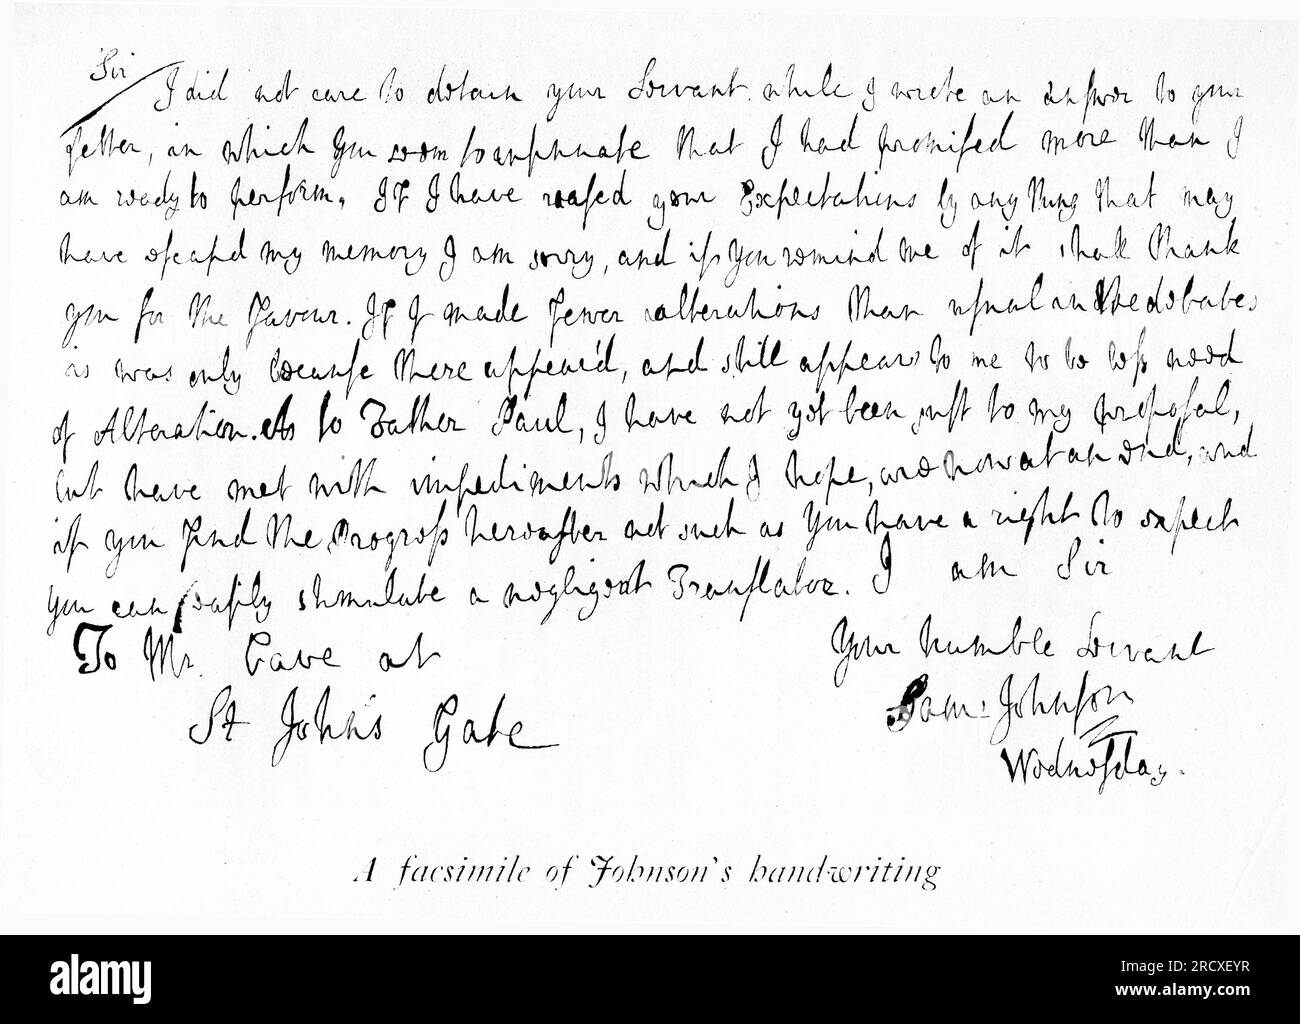 Sir
I did not care to detain your Servant while I wrote an answer to your
Letter, in which you seem to insinuate that I had promised more than I
am ready to perform. If I have raised your Expectations by any thing that may
have escaped my memory I am sorry, and if you remind me of it shall thank
you for the favour. If I made fewer alterations than usual in the debates
it was only because there appear'd, and still appears to me to be less need
of Alteration. As to Father Paul, I have not yet been just to my proposal,
but have met with impediments which I hope, are now at an end, and
if you find the Progress hereafter not such as you have a right to expect
you can easily stimulate a negligent Translator. I am Sir
To Mr. Cave at
St John's Gate
Your humble Servant
Sam: Johnson
Wednesday.
A facsimile of Johnson's handwriting
alamy
a
alamy
Image ID: 2RCXEYR
www.alamy.com